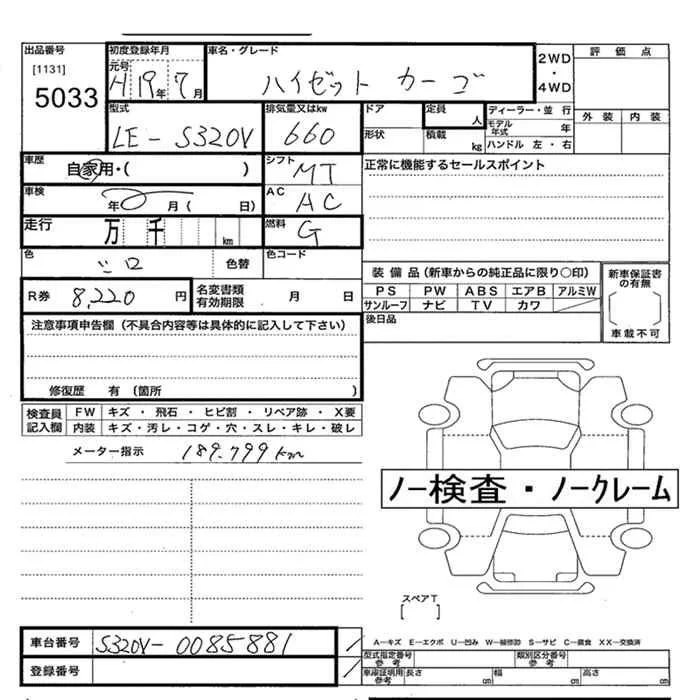 出品番号 初度登録年月 車名・グレード 2WD・4WD 評価点
[1131] 元号 H19年7月 ハイゼット カーゴ
5033
型式 排気量又はkw ドア 定員 人 ディーラー・並行 外装 内装
LE-S320V 660 形状 積載 kg モデル年式 年
ハンドル 左・右
車歴 自家用・( ) シフト MT 正常に機能するセールスポイント
車検 年 月 ( 日) AC AC
走行 万 千 km 燃料 G
色 シロ 色替 色コード
装備品(新車からの純正品に限り○印) 新車保証書の有無
R券 8,220 円 名変書類有効期限 月 日 PS PW ABS エアB アルミW
サンルーフ ナビ TV カワ
注意事項申告欄(不具合内容等は具体的に記入して下さい) 後日品 車載不可
修復歴 有 (箇所 )
検査員記入欄 FW キズ・飛石・ヒビ割・リペア跡・X要
内装 キズ・汚レ・コゲ・穴・スレ・キレ・破レ
メーター指示 189.799km
ノー検査・ノークレーム
スペアT
[ ]
車台番号 S320V-0085881 A-キズ E-エクボ U-凹み W-補修跡 S-サビ C-腐食 XX-交換済
登録番号 型式指定番号参考 類別区分番号参考
車庫証明用参考 長さ cm 幅 cm 高さ cm